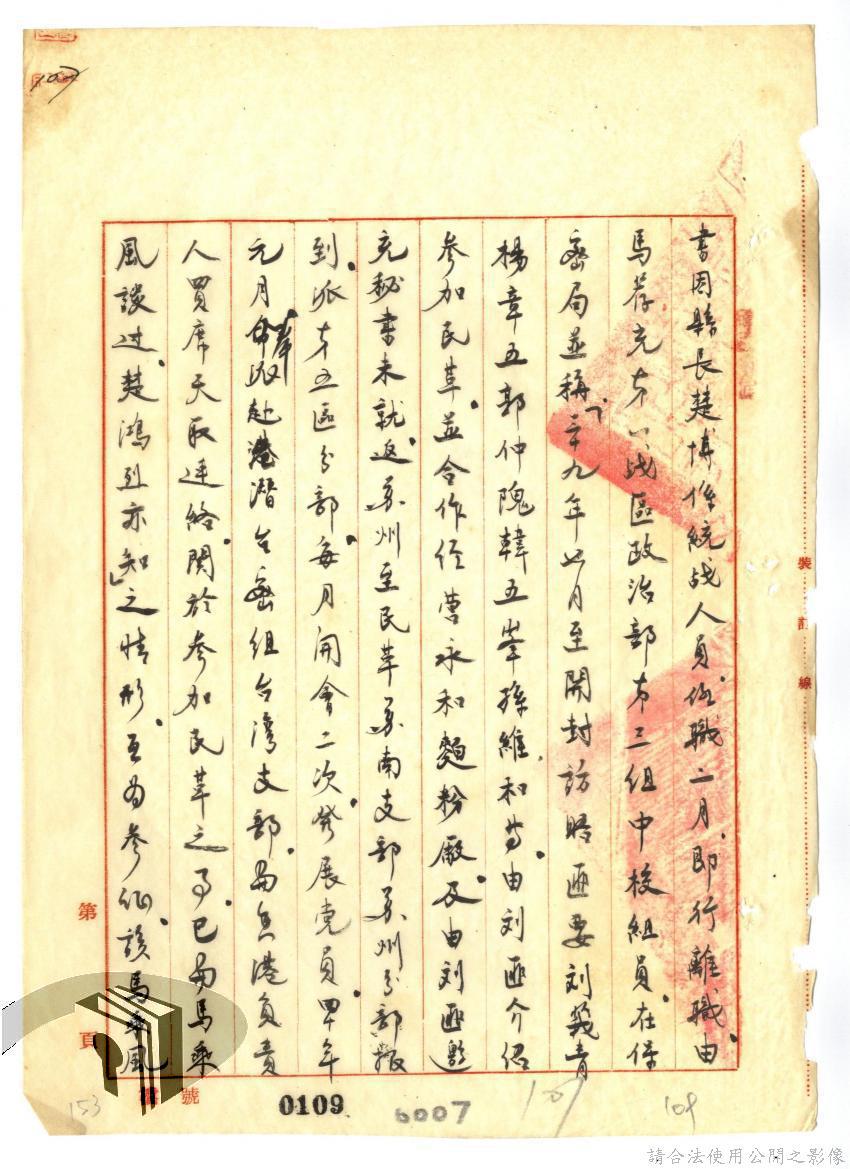 書因縣長楚博係統战人員，伍職二月，即行離職，由
馬荐充第八战區政治部第三組中校組員，在保
密局並稱「三十九年七月至開封訪晤匪要刘箴青
楊章五郭仲隗韓五峯孫維和等，由刘匪介紹
參加民革，並合作經营永和麵粉廠，及由刘匪邀
充秘書未就，返苏州至民革苏南支部苏州分部報
到，派第五區分部，每月開會二次，發展党員，四十年
元月奉派赴港潛台密組台湾支部，曾與港負責
人買席天取連絡，関於參加民革之事，已与馬乘
風談过，楚鴻烈亦知」之情形，互为參证，該馬乘風
裝訂線
第 頁
號
0109
6007
107
109
153
107
請合法使用公開之影像